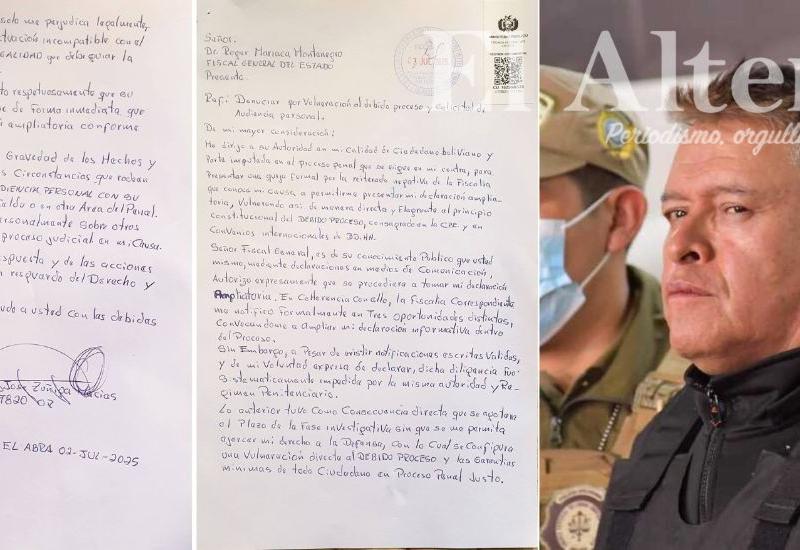 solo me perjudica legalmente,
actuación incompatible con el
EGALIDAD que debe guiar la
to respetuosamente que su
ne de Forma inmediata que
ampliatoria conforme
Gravedad de los Hechos y
s Circunstancias que rodean
DIENCIA PERSONAL CON SU
aldo o en otra Area del Penal.
ersonalmente sobre otros
proceso judicial en mi Causa.
spuesta y de las acciones
n resguardo del Derecho y
udo a usted con las debidas
Jose Zuñiga Macias
EL ABRA 02-JUL-2025
SEÑOR.
Dr. Roger Mariaca Montenegro
FISCAL GENERAL DEL ESTADO
Presente.
Ref: Denuciar por Vulneración al debido proceso y Solicitud de
Audiencia personal.
De mi mayor consideración:
Me dirijo a su Autoridad en mi Calidad de Ciudadano boliviano y
Parte imputada en el proceso penal que se sigue en mi contra, para
Presentar una queja Formal por la reiterada negativa de la Fiscalia
que conoce mi causa, a permitirme presentar mi declaración amplia-
toria, Vulnerando así de manera directa y Flagrante al principio
constitucional del DEBIDO PROCESO, consagrado en la CPE. y en
Convenios internacionales de DD.HH.
Señor Fiscal General, es de su conocimiento Público que usted
mismo, mediante declaraciones en medios de Comunicación,
Autorizo expresamente que se procediera a tomar mi declaración
Ampliatoria. En Coherencia Con ello, la Fiscalia Correspondiente
me notificó Formalmente en Tres oportunidades distintas,
Convocandome a Ampliar mi declaración informativa dentro
del Proceso.
Sin Embargo, a Pesar de existir notificaciones escritas Validas,
y de mi Voluntad expresa de declarar, dicha diligencia Fue
Sistematicamente impedida por la misma autoridad y Re-
gimen Penitenciario.
Lo anterior tuvo Como Consecuencia directa que se agotara
el Plazo de la Fase investigativa sin que se me permita
ejercer mi derecho a la Defensa, con lo Cual se Configura
una Vulneración directa al DEBIDO PROCESO y las Garantías
minimas de todo Ciudadano en Proceso Penal Justo.
El Alter
Periodismo, orgull